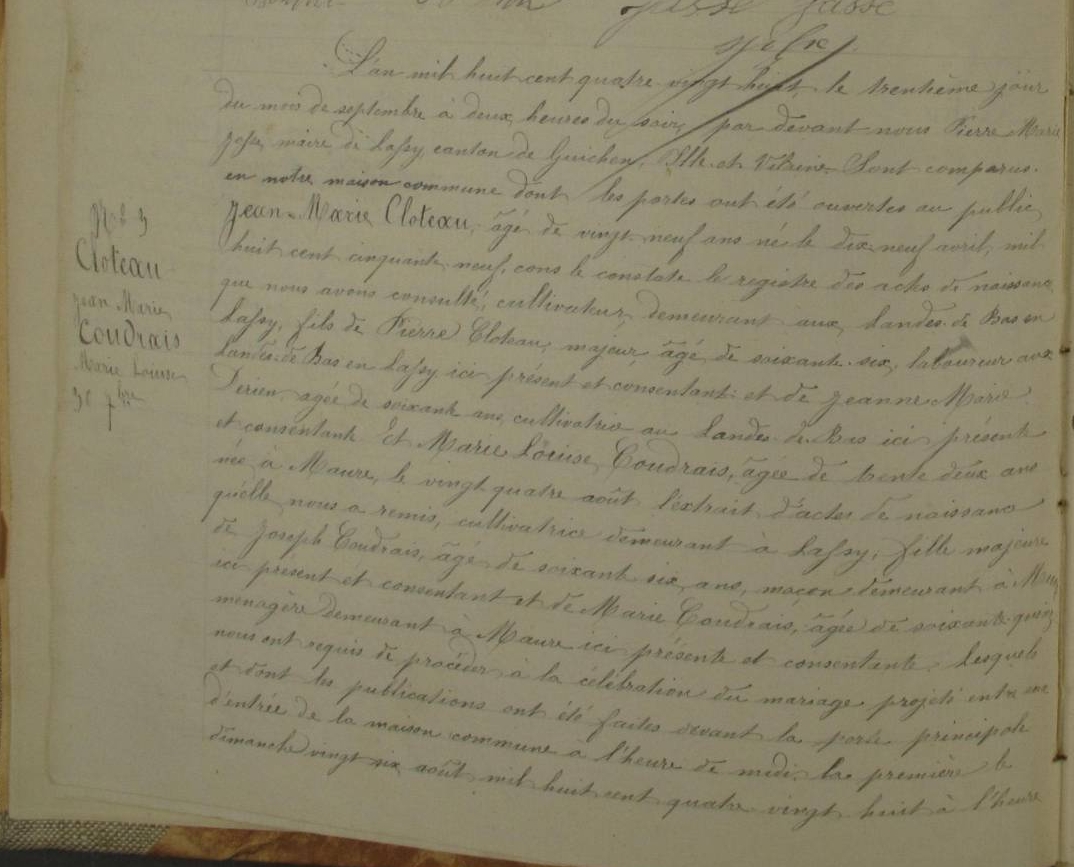 Josse Josse
N° 9
Cloteau
Jean Marie
Coudrais
Marie Louise
30 7bre
L'an mil huit cent quatre vingt huit, le trentième jour
du mois de septembre à deux heures du soir, par devant nous Pierre Marie
Josse, maire de Lassy, canton de Guichen, Ille et Vilaine Sont comparus
en notre maison commune dont les portes ont été ouvertes au public,
Jean-Marie Cloteau, âgé de vingt-neuf ans né le dix-neuf avril, mil
huit cent cinquante neuf, cons le constate le registre des actes de naissance
que nous avons consulté, cultivateur, demeurant aux Landes de Bas en
Lassy, fils de Pierre Cloteau, majeur âgé de soixante-six, laboureur aux
Landes de Bas en Lassy ici présent et consentant: et de Jeanne Marie
Derien agée de soixante ans, cultivatrice au Landes de Bas ici présente
et consentante Et Marie Louise Coudrais, âgée de trente deux ans
née à Maure, le vingt quatre août l'extrait d'actes de naissance
qu'elle nous a remis, cultivatrice demeurant à Lassy, fille majeure
de Joseph Coudrais, âgé de soixante six ans, maçon demeurant à
ici présent et consentant et de Marie Coudrais, âgée de soixante-quinze
menagère demeurant à Maure ici présente et consentante, lesquels
nous ont requis de procéder à la célébration du mariage projeté entre eux
et dont les publications ont été faites devant la porte principale
d'entrée de la maison commune à l'heure de midi, la première le
dimanche vingt six août mil huit cent quatre vingt huit à l'heure